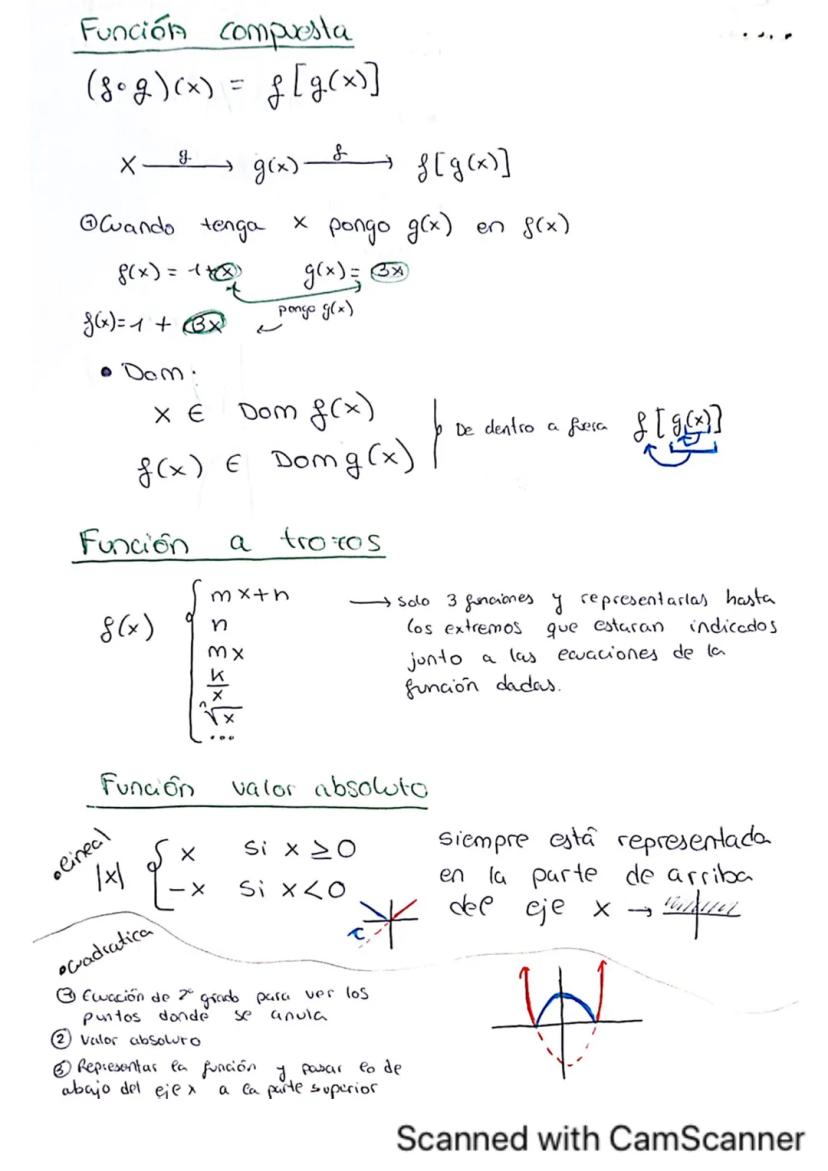 Función compuesta
(f∘g)(x) = f[g(x)]
x —g→ g(x) —f→ f[g(x)]
① Cuando tenga x pongo g(x) en f(x)
f(x) = 1+x g(x) = 3x
pongo g(x)
f(x) = 1 + 3x
• Dom:
x ∈ Dom f(x)
f(x) ∈ Dom g(x)
De dentro a fuera f[g(x)]
Función a trozos
f(x)
mx+n
n
mx
k/x
ⁿ√x
...
→ Solo 3 funciones y representarlas hasta
los extremos que estaran indicados
junto a las ecuaciones de la
función dadas.
Función valor absoluto
• Lineal
|x| { x si x ≥ 0
-x si x < 0
siempre está representada
en la parte de arriba
del eje x →
• Cuadratica
① Ecuación de 2º grado para ver los
puntos donde se anula
② Valor absoluto
③ Representar la función y pasar lo de
abajo del eje x a la parte superior
Scanned with CamScanner